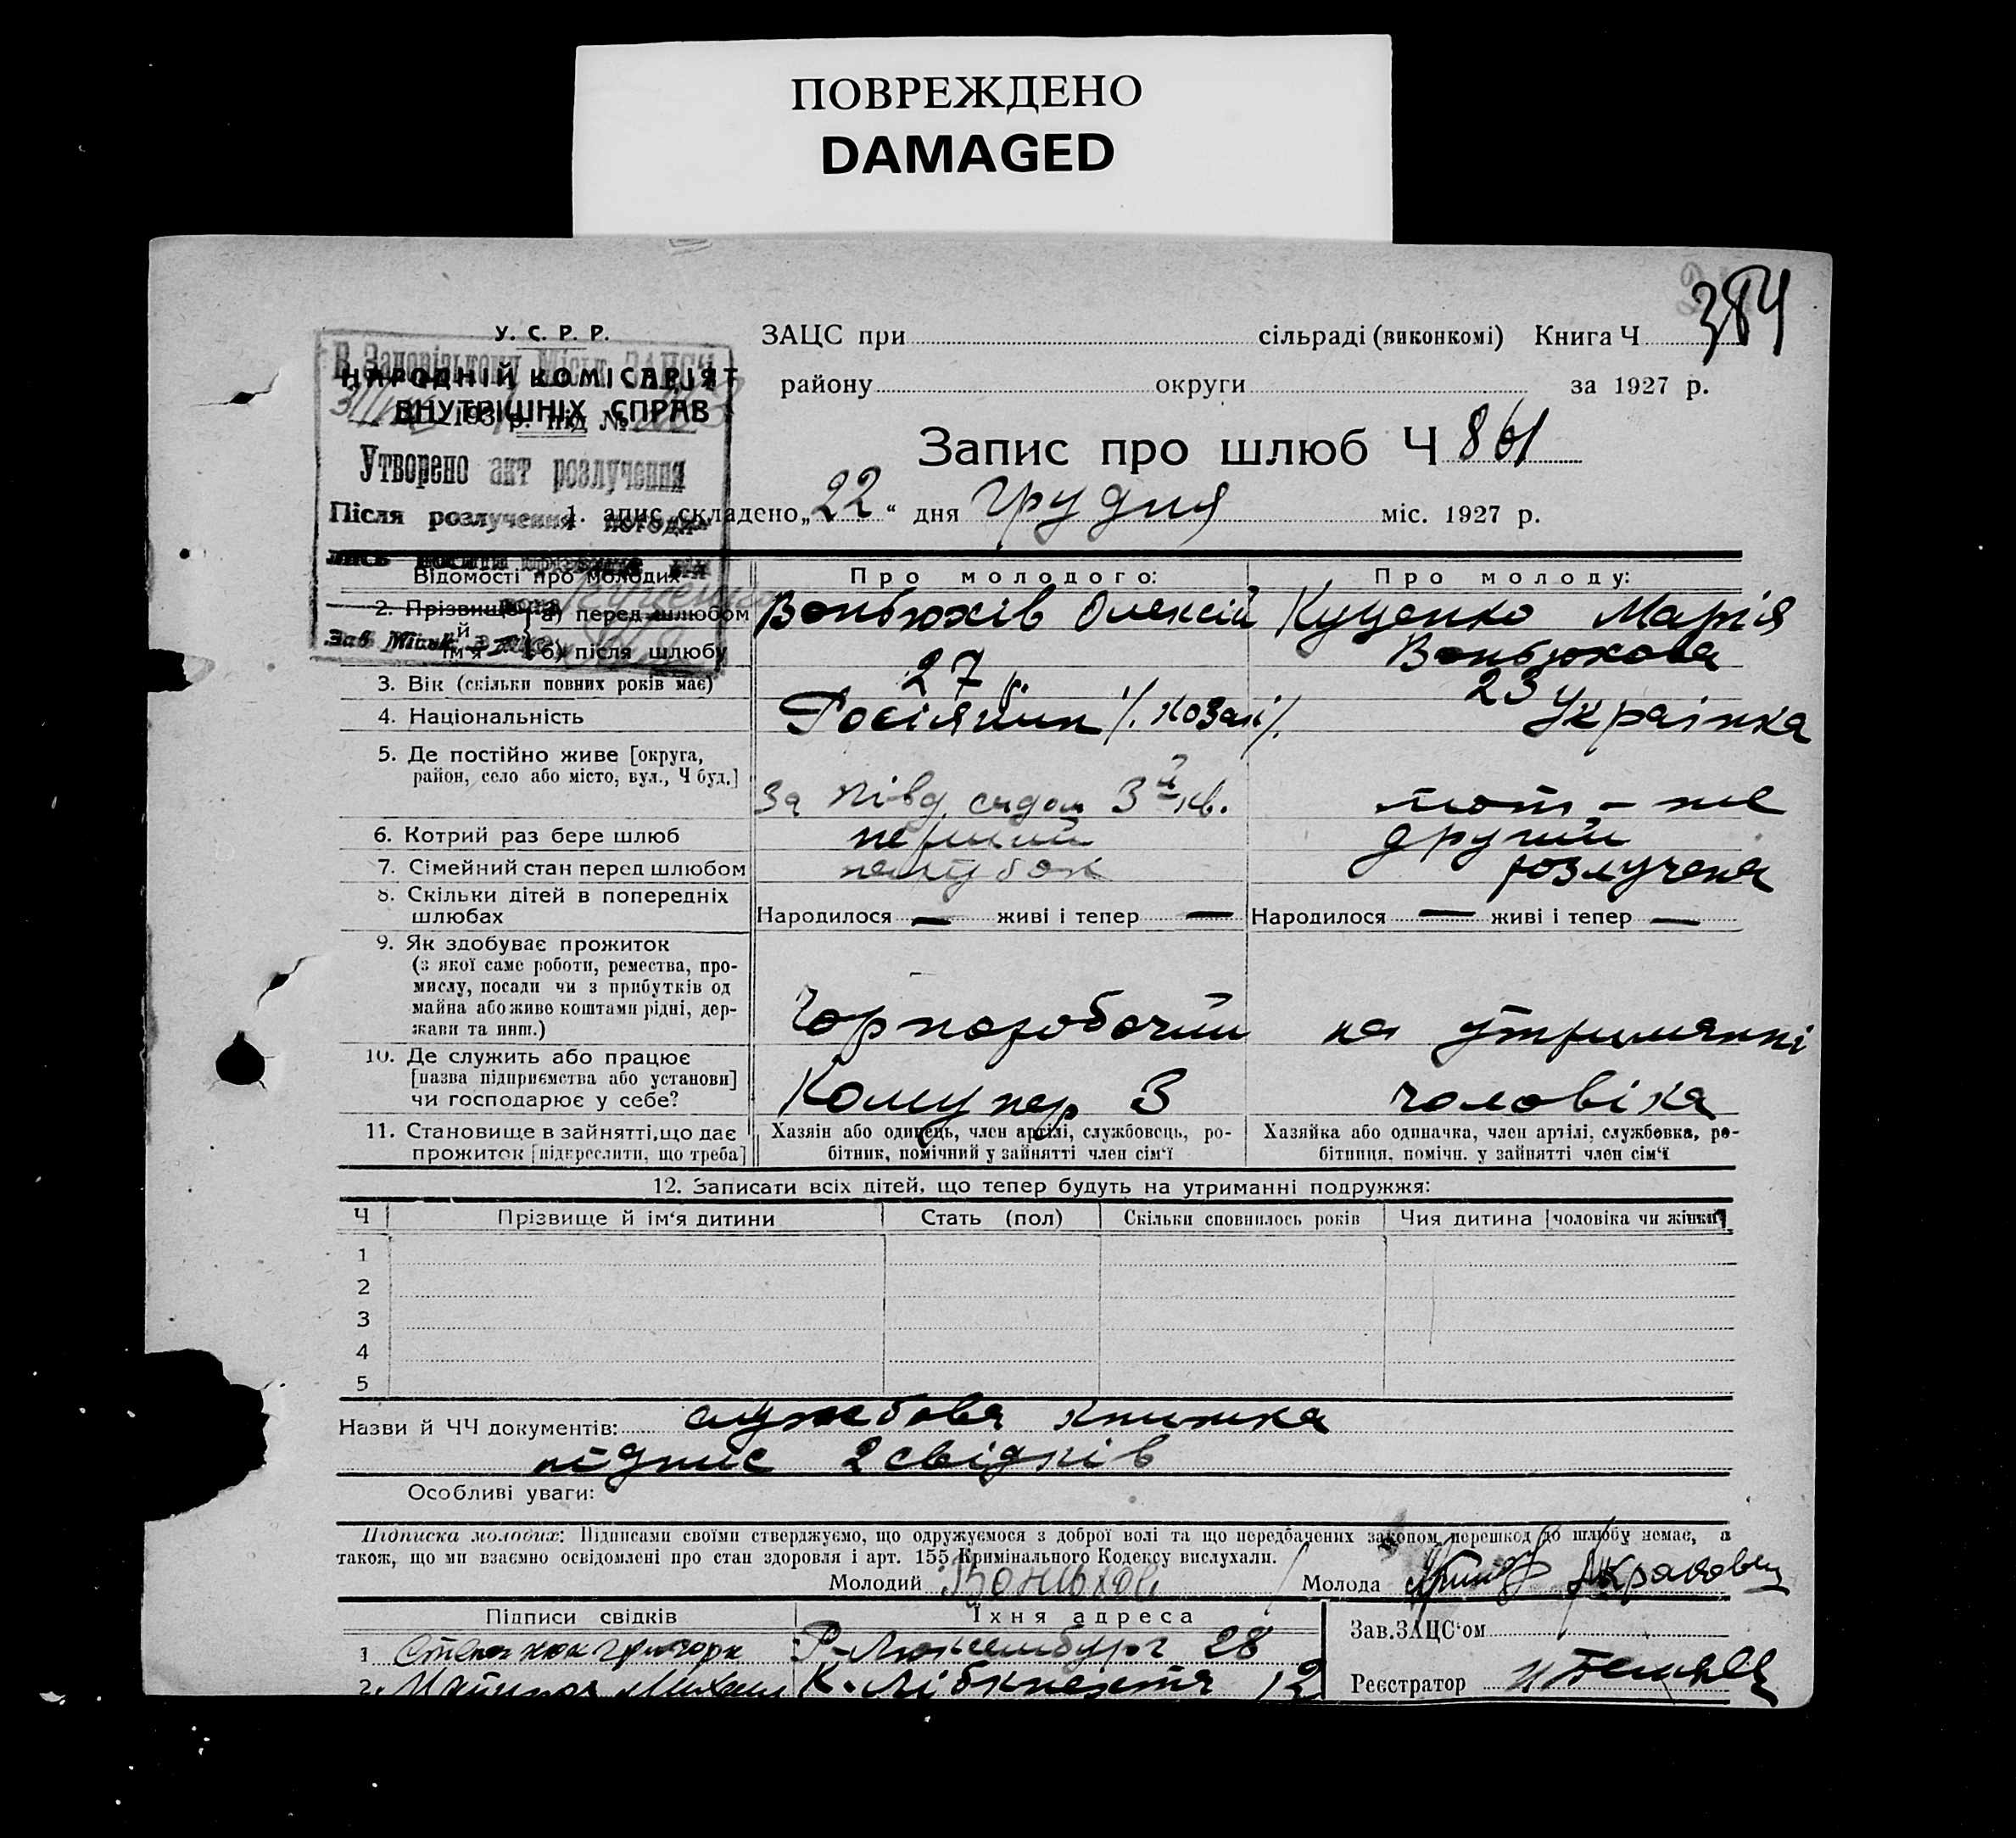 ПОВРЕЖДЕНО
DAMAGED
384
У. С. Р. Р.
НАРОДНІЙ КОМІСАРІЯТ
ВНУТРІШНІХ СПРАВ
В Запорізькому Міськ. ЗАГСІ
193 р. під №
Утворено акт розлучення
Після розлучення погоди-
лись носити прізвища він
вона Куценко
Зав Міськ.
ЗАЦС при сільраді (виконкомі) Книга Ч
району округи за 1927 р.
Запис про шлюб Ч 861
1. апис складено „22“ дня грудня міс. 1927 р.
Відомості про молодих Про молодого: Про молоду:
2. Прізвище й ім'я а) перед шлюбом Вонбюхів Олексій Куценко Марія
б) після шлюбу Вонбюхова
3. Вік (скільки повних років має) 27 р. 23
4. Національність Росіянин /. козак/. Українка
5. Де постійно живе [округа,
район, село або місто, вул., Ч буд.] За Півд. садом 3й кв. тот-же
6. Котрий раз бере шлюб перший другий
7. Сімейний стан перед шлюбом парубок розлучена
8. Скільки дітей в попередніх
шлюбах Народилося — живі і тепер — Народилося — живі і тепер —
9. Як здобуває прожиток
(з якої саме роботи, ремества, про-
мислу, посади чи з прибутків од
майна або живе коштами рідні, дер-
жави та инш.) Чорноробочий на утриманні
10. Де служить або працює
[назва підприємства або установи]
чи господарює у себе? Комунар 3 чоловіка
11. Становище в зайнятті, що дає
прожиток [підкреслити, що треба]
Хазяїн або одинець, член артілі, службовець, ро-
бітник, помічний у зайнятті член сім'ї
Хазяйка або одиначка, член артілі, службовка, ро-
бітниця, помічн. у зайнятті член сім'ї
12. Записати всіх дітей, що тепер будуть на утриманні подружжя:
Ч Прізвище й ім'я дитини Стать (пол) Скільки сповнилось років Чия дитина [чоловіка чи жінки]
1
2
3
4
5
Назви й ЧЧ документів: службова книжка
підпис 2 свідків
Особливі уваги:
Підписка молодих: Підписами своїми стверджуємо, що одружуємося з доброї волі та що передбачених законом перешкод до шлюбу немає, а
також, що ми взаємно освідомлені про стан здоровля і арт. 155 Кримінального Кодексу вислухали.
Молодий Молода
Підписи свідків Їхня адреса
1 Григорк Р-Люксембург 28
2. Михаил К. Лібкнехта 12
Зав.ЗАЦС'ом
Реєстратор